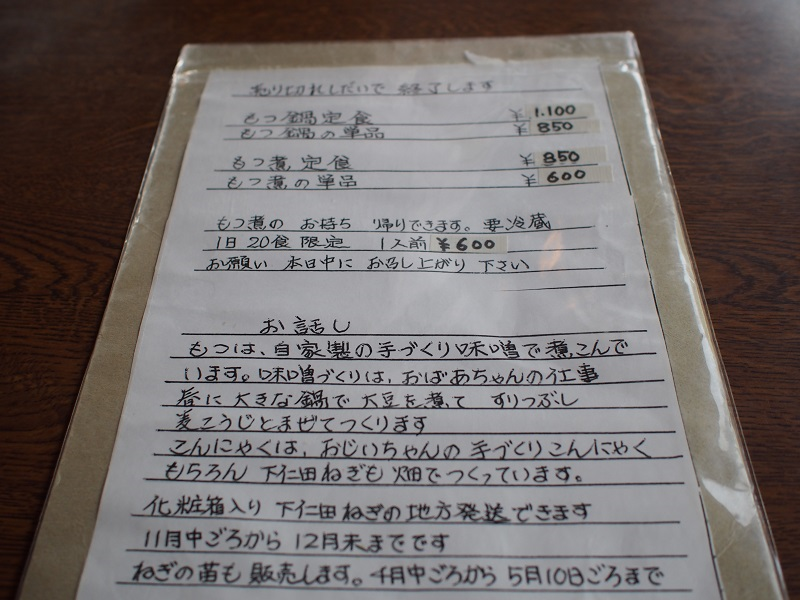 売り切れしだいで 終了します
もつ鍋定食 ¥1.100
もつ鍋の単品 ¥850
もつ煮定食 ¥850
もつ煮の単品 ¥600
もつ煮の お持ち 帰りできます。要冷蔵
1日20食限定 1人前 ¥600
お願い 本日中に お召し上がり 下さい
お話し
もつは、自家製の手づくり味噌で煮こんで
います。味噌づくりは、おばあちゃんの仕事
春に大きな鍋で大豆を煮て すりつぶし
麦こうじとまぜてつくります
こんにゃくは、おじいちゃんの手づくりこんにゃく
もちろん 下仁田ねぎも 畑でつくっています。
化粧箱入り 下仁田ねぎの地方発送できます
11月中ごろから 12月末までです
ねぎの苗も 販売します。4月中ごろから 5月10日ごろまで